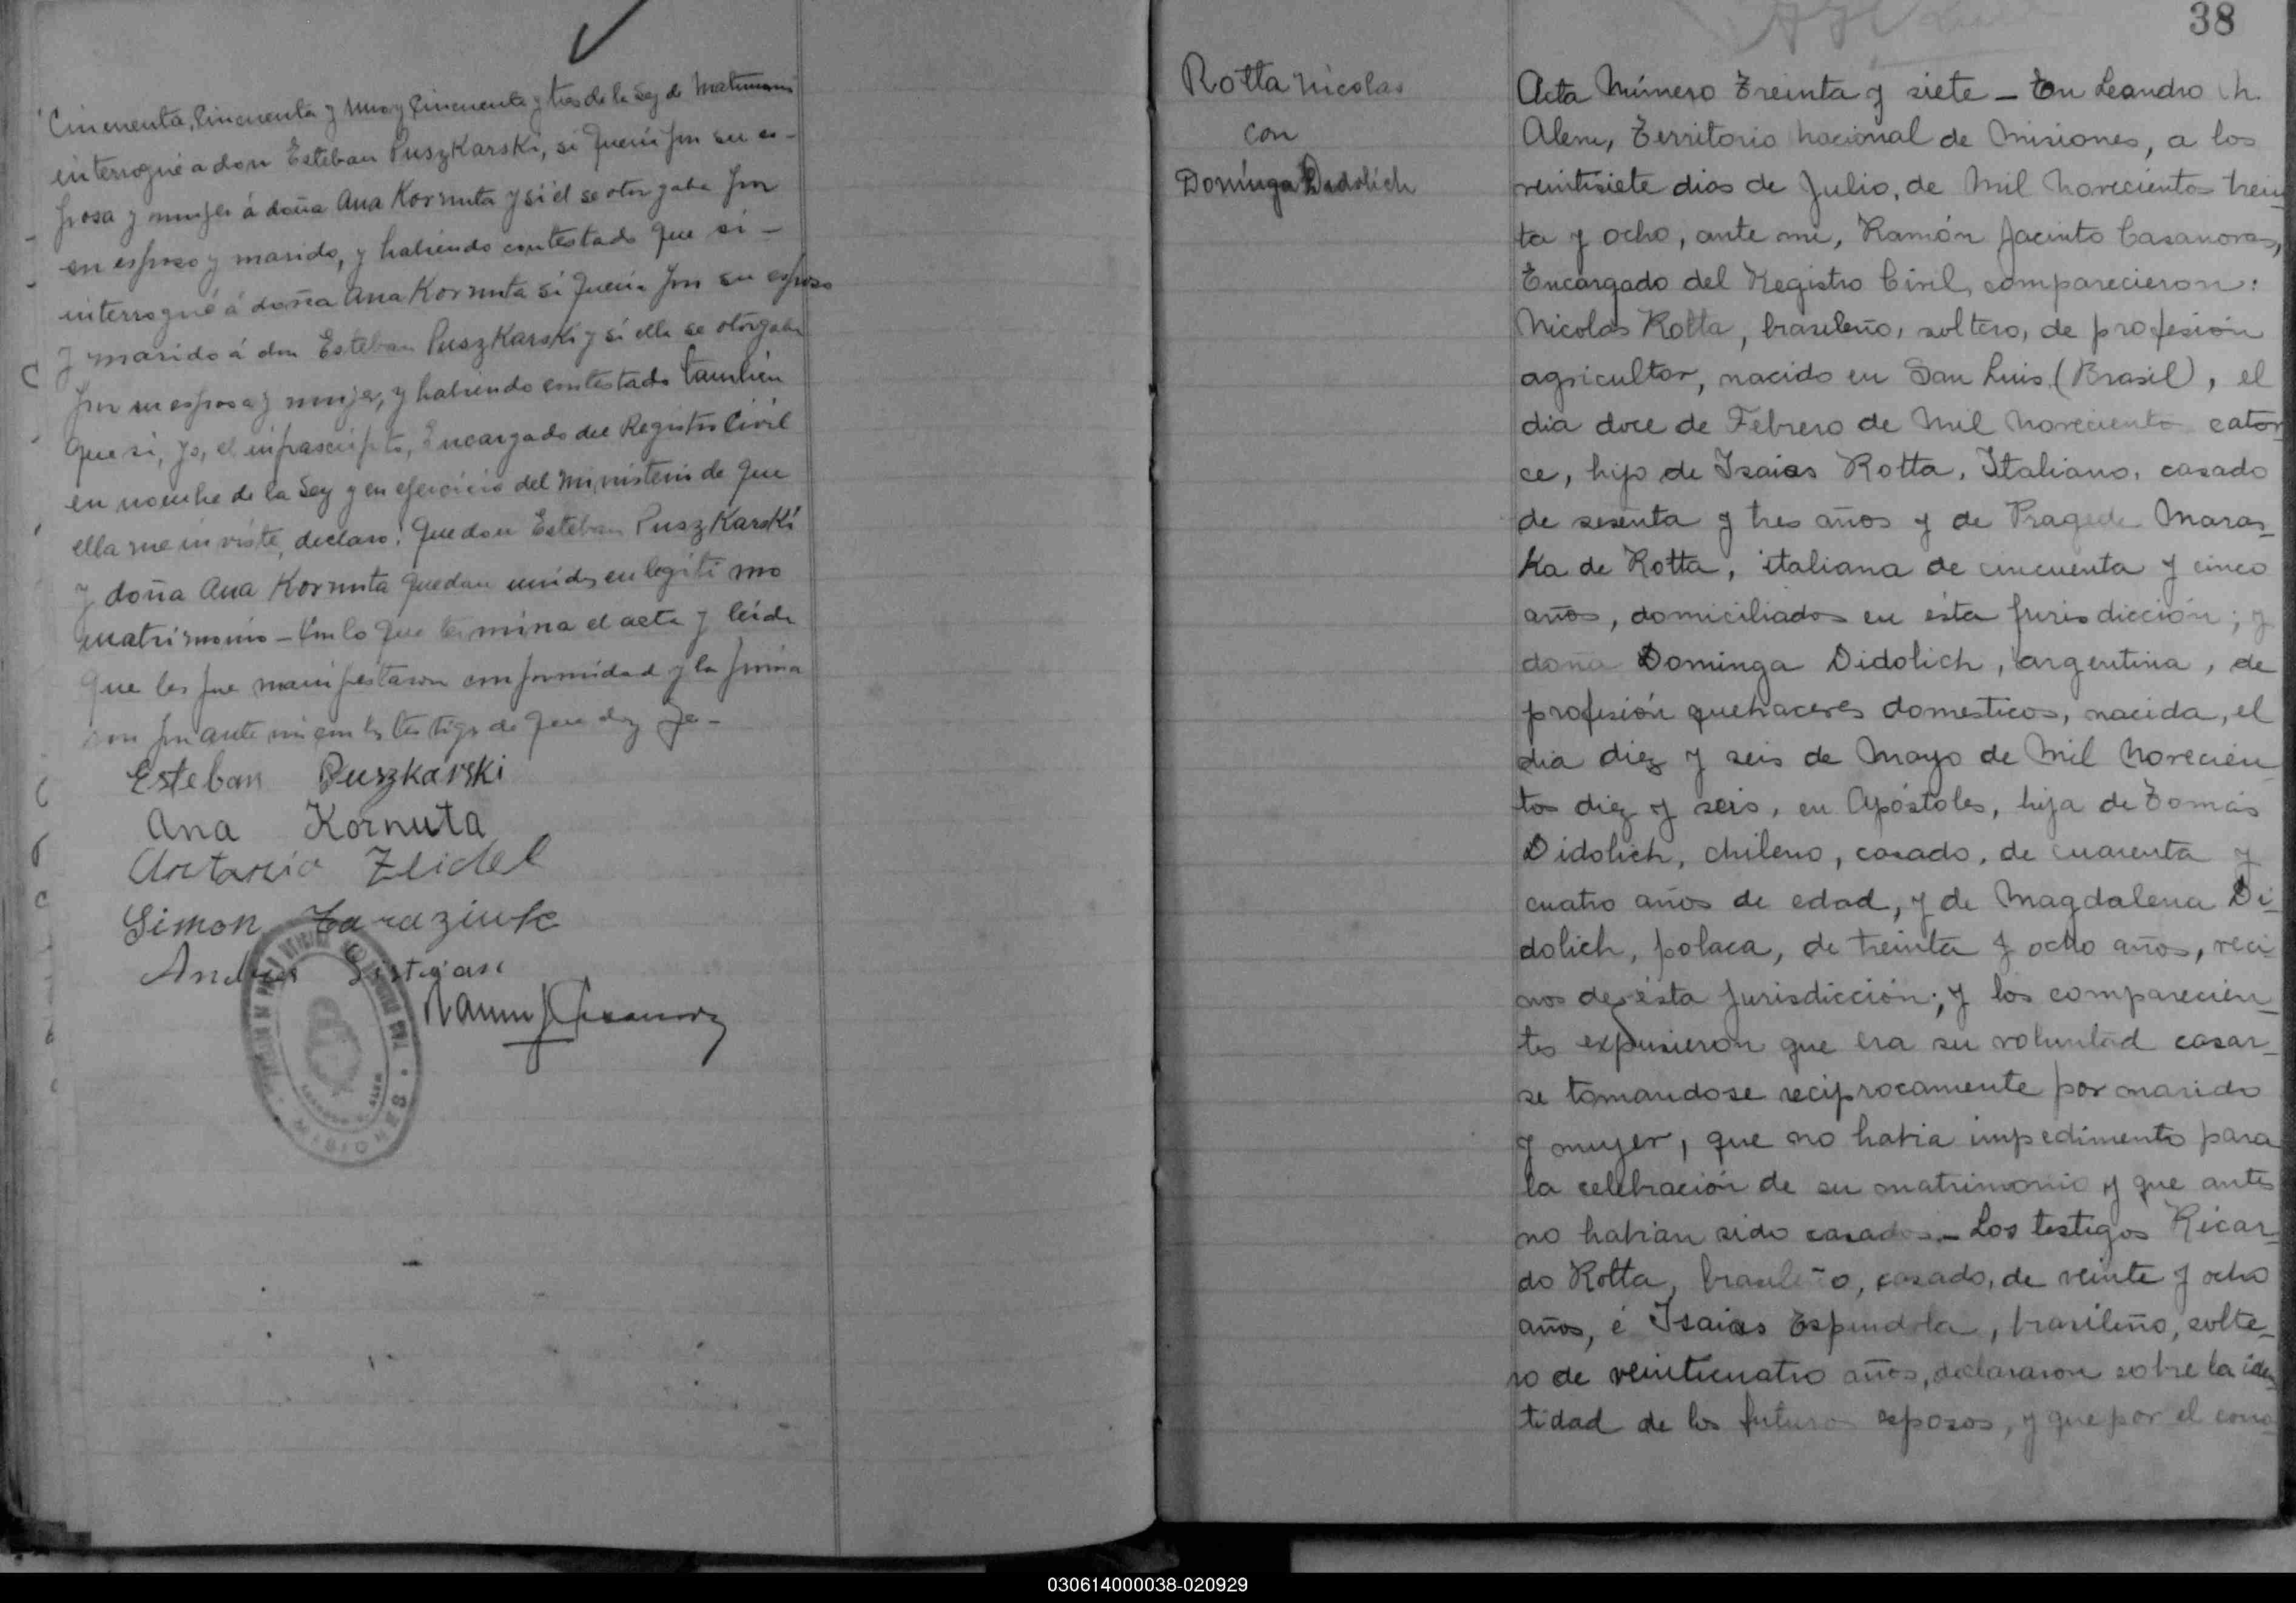 Cincuenta, Cincuenta y uno y Cincuenta y tres de la Ley de Matrimonio
interrogué a don Esteban Puszkarski, si queria por su es-
posa y mujer á doña Ana Kornuta y si él se otorgaba por
su esposo y marido, y habiendo contestado que si -
interrogué á doña Ana Kornuta si queria por su esposo
y marido á don Esteban Puszkarski y si ella se otorgaba
por su esposa y mujer, y habiendo contestado también
que si, yo, el infrascripto, Encargado del Registro Civil
en nombre de la Ley y en ejercicio del Ministerio de que
ella me inviste, declaro: Que don Esteban Puszkarski
y doña Ana Kornuta quedan unidos en legitimo
matrimonio - Con lo que termina el acta y leida
que les fue manifestaron conformidad y la firma
ron por ante mi con los testigos de que doy fe -
Esteban Puszkarski
Ana Kornuta
Antonio Zeidel
Simon
Ramon J Casanovas
MISIONES
38
Rotta Nicolas
con
Dominga Didolich
Acta Número Treinta y siete - En Leandro N.
Alem, Territorio Nacional de Misiones, a los
veintisiete dias de Julio, de Mil Novecientos trein
ta y ocho, ante mi, Ramón Jacinto Casanovas,
Encargado del Registro Civil, comparecieron:
Nicolas Rotta, brasileño, soltero, de profesión
agricultor, nacido en San Luis, (Brasil), el
dia doce de Febrero de Mil Noveciento cator
ce, hijo de Isaias Rotta, Italiano, casado
de sesenta y tres años y de Pragede Maras-
ka de Rotta, italiana de cincuenta y cinco
años, domiciliados en ésta jurisdicción; y
doña Dominga Didolich, argentina, de
profesión quehaceres domesticos, nacida, el
dia diez y seis de Mayo de Mil Novecien
tos diez y seis, en Apóstoles, hija de Tomás
Didolich, chileno, casado, de cuarenta y
cuatro años de edad, y de Magdalena Di-
dolich, polaca, de treinta y ocho años, veci-
nos de ésta jurisdicción; y los comparecien-
tes expusieron que era su voluntad casar-
se tomandose reciprocamente por marido
y mujer, que no habia impedimento para
la celebración de su matrimonio y que antes
no habian sido casados.- Los testigos Ricar-
do Rotta, brasileño, casado, de veinte y ocho
años, é Isaias Espindola, brasileño, solte-
ro de veinticuatro años, declararon sobre la iden
tidad de los futuros esposos, y que por el cono
030614000038-020929